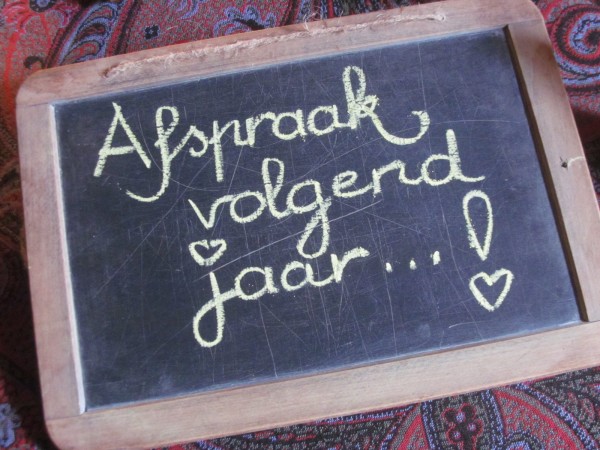 Afspraak
volgend
jaar...!